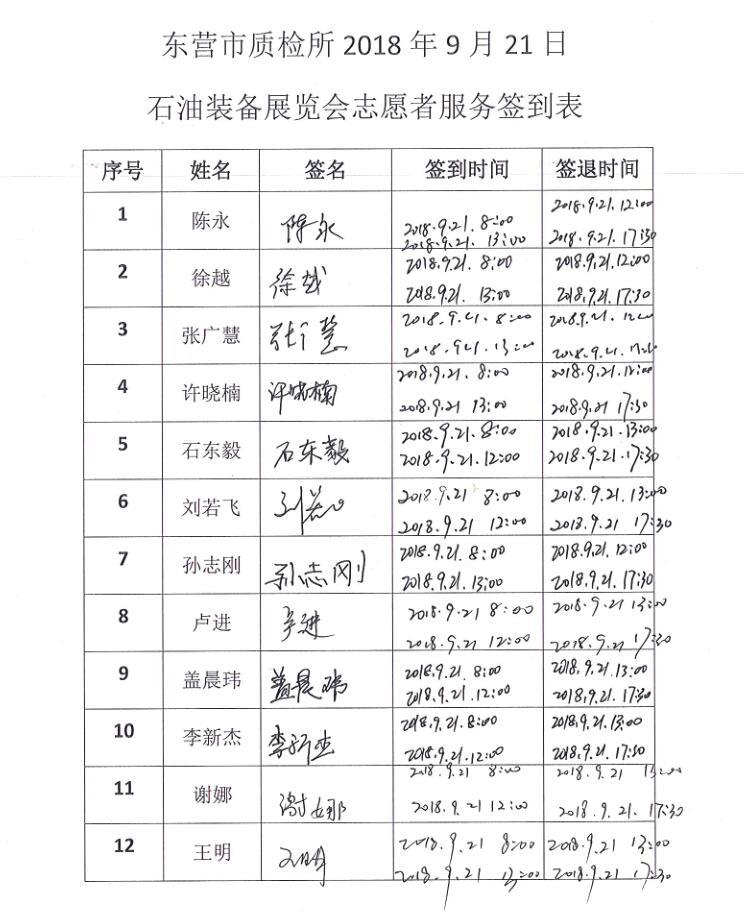 东营市质检所 2018 年 9 月 21 日
石油装备展览会志愿者服务签到表
序号 姓名 签名 签到时间 签退时间
1 陈永 陈永 2018.9.21. 8:00 2018.9.21. 12:00
2018.9.21. 13:00 2018.9.21. 17:30
2 徐越 徐越 2018.9.21. 8:00 2018.9.21. 12:00
2018.9.21. 13:00 2018.9.21. 17:30
3 张广慧 张广慧 2018.9.21. 8:00 2018.9.21. 12:00
2018.9.21. 13:00 2018.9.21. 17:30
4 许晓楠 许晓楠 2018.9.21. 8:00 2018.9.21. 12:00
2018.9.21 13:00 2018.9.21 17:30
5 石东毅 石东毅 2018.9.21. 8:00 2018.9.21. 13:00
2018.9.21. 12:00 2018.9.21. 17:30
6 刘若飞 2018.9.21 8:00 2018.9.21. 13:00
2018.9.21 12:00 2018.9.21 17:30
7 孙志刚 孙志刚 2018.9.21. 8:00 2018.9.21. 12:00
2018.9.21. 13:00 2018.9.21. 17:30
8 卢进 卢进 2018.9.21 8:00 2018.9.21 13:00
2018.9.21 12:00 2018.9.21 17:30
9 盖晨玮 盖晨玮 2018.9.21 8:00 2018.9.21. 13:00
2018.9.21. 12:00 2018.9.21. 17:30
10 李新杰 李新杰 2018.9.21. 8:00 2018.9.21. 13:00
2018.9.21. 12:00 2018.9.21. 17:30
11 谢娜 谢娜 2018.9.21 8:00 2018.9.21 13:00
2018.9.21 12:00 2018.9.21. 17:30
12 王明 王明 2018.9.21 8:00 2018.9.21 13:00
2018.9.21 13:00 2018.9.21 17:30